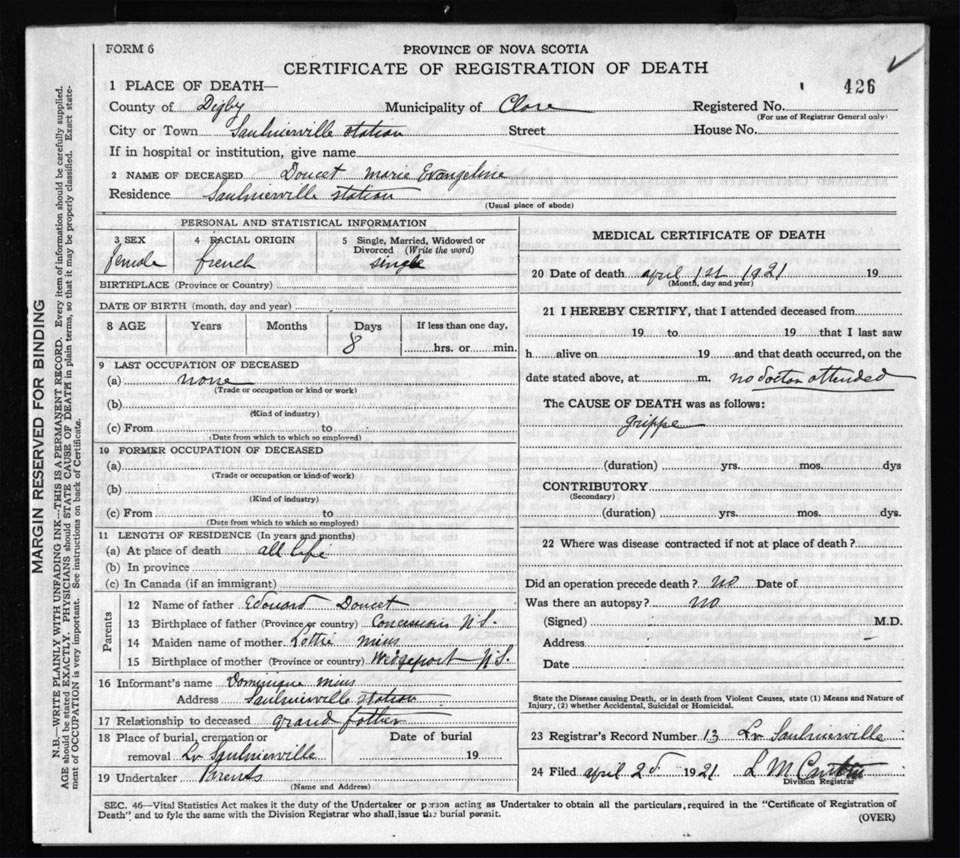 FORM 6
PROVINCE OF NOVA SCOTIA
CERTIFICATE OF REGISTRATION OF DEATH
426
1 PLACE OF DEATH—
County of Digby Municipality of Clare Registered No.
(For use of Registrar General only)
City or Town Saulnierville Station Street House No.
If in hospital or institution, give name
2 NAME OF DECEASED Doucet Marie Evangeline
Residence Saulnierville Station
(Usual place of abode)
PERSONAL AND STATISTICAL INFORMATION
3 SEX female
4 RACIAL ORIGIN french
5 Single, Married, Widowed or Divorced (Write the word) single
BIRTHPLACE (Province or Country)
DATE OF BIRTH (month, day and year)
8 AGE Years Months Days If less than one day,
8 hrs. or min.
9 LAST OCCUPATION OF DECEASED
(a) none
(Trade or occupation or kind or work)
(b)
(Kind of industry)
(c) From to
(Date from which to which so employed)
10 FORMER OCCUPATION OF DECEASED
(a)
(Trade or occupation or kind or work)
(b)
(Kind of industry)
(c) From to
(Date from which to which so employed)
11 LENGTH OF RESIDENCE (In years and months)
(a) At place of death all life
(b) In province
(c) In Canada (if an immigrant)
Parents
12 Name of father Edouard Doucet
13 Birthplace of father (Province or country) Concession N.S.
14 Maiden name of mother Lottie Mius
15 Birthplace of mother (Province or country) Wedgeport N.S.
16 Informant's name Dominique Mius
Address Saulnierville Station
17 Relationship to deceased grand father
18 Place of burial, cremation or removal Lr Saulnierville Date of burial 19
19 Undertaker Parents
(Name and Address)
MEDICAL CERTIFICATE OF DEATH
20 Date of death april 1st 1921 19
(Month, day and year)
21 I HEREBY CERTIFY, that I attended deceased from
19 to 19 that I last saw
h alive on 19 and that death occurred, on the
date stated above, at m. no doctor attended
The CAUSE OF DEATH was as follows:
grippe
(duration) yrs. mos. dys
CONTRIBUTORY
(Secondary)
(duration) yrs. mos. dys.
22 Where was disease contracted if not at place of death?
Did an operation precede death? no Date of
Was there an autopsy? no
(Signed) M.D.
Address
Date
State the Disease causing Death, or in death from Violent Causes, state (1) Means and Nature of
Injury, (2) whether Accidental, Suicidal or Homicidal.
23 Registrar's Record Number 13 Lr Saulnierville
24 Filed april 2d 1921 L M
Division Registrar
SEC. 46—Vital Statistics Act makes it the duty of the Undertaker or person acting as Undertaker to obtain all the particulars, required in the "Certificate of Registration of
Death" and to fyle the same with the Division Registrar who shall, issue the burial permit.
(OVER)
MARGIN RESERVED FOR BINDING
N.B.—WRITE PLAINLY WITH UNFADING INK—THIS IS A PERMANENT RECORD. Every item of information should be carefully supplied.
AGE should be stated EXACTLY. PHYSICIANS should STATE CAUSE OF DEATH in plain terms, so that it may be properly classified. Exact state-
ment of OCCUPATION is very important. See instructions on back of Certificate.